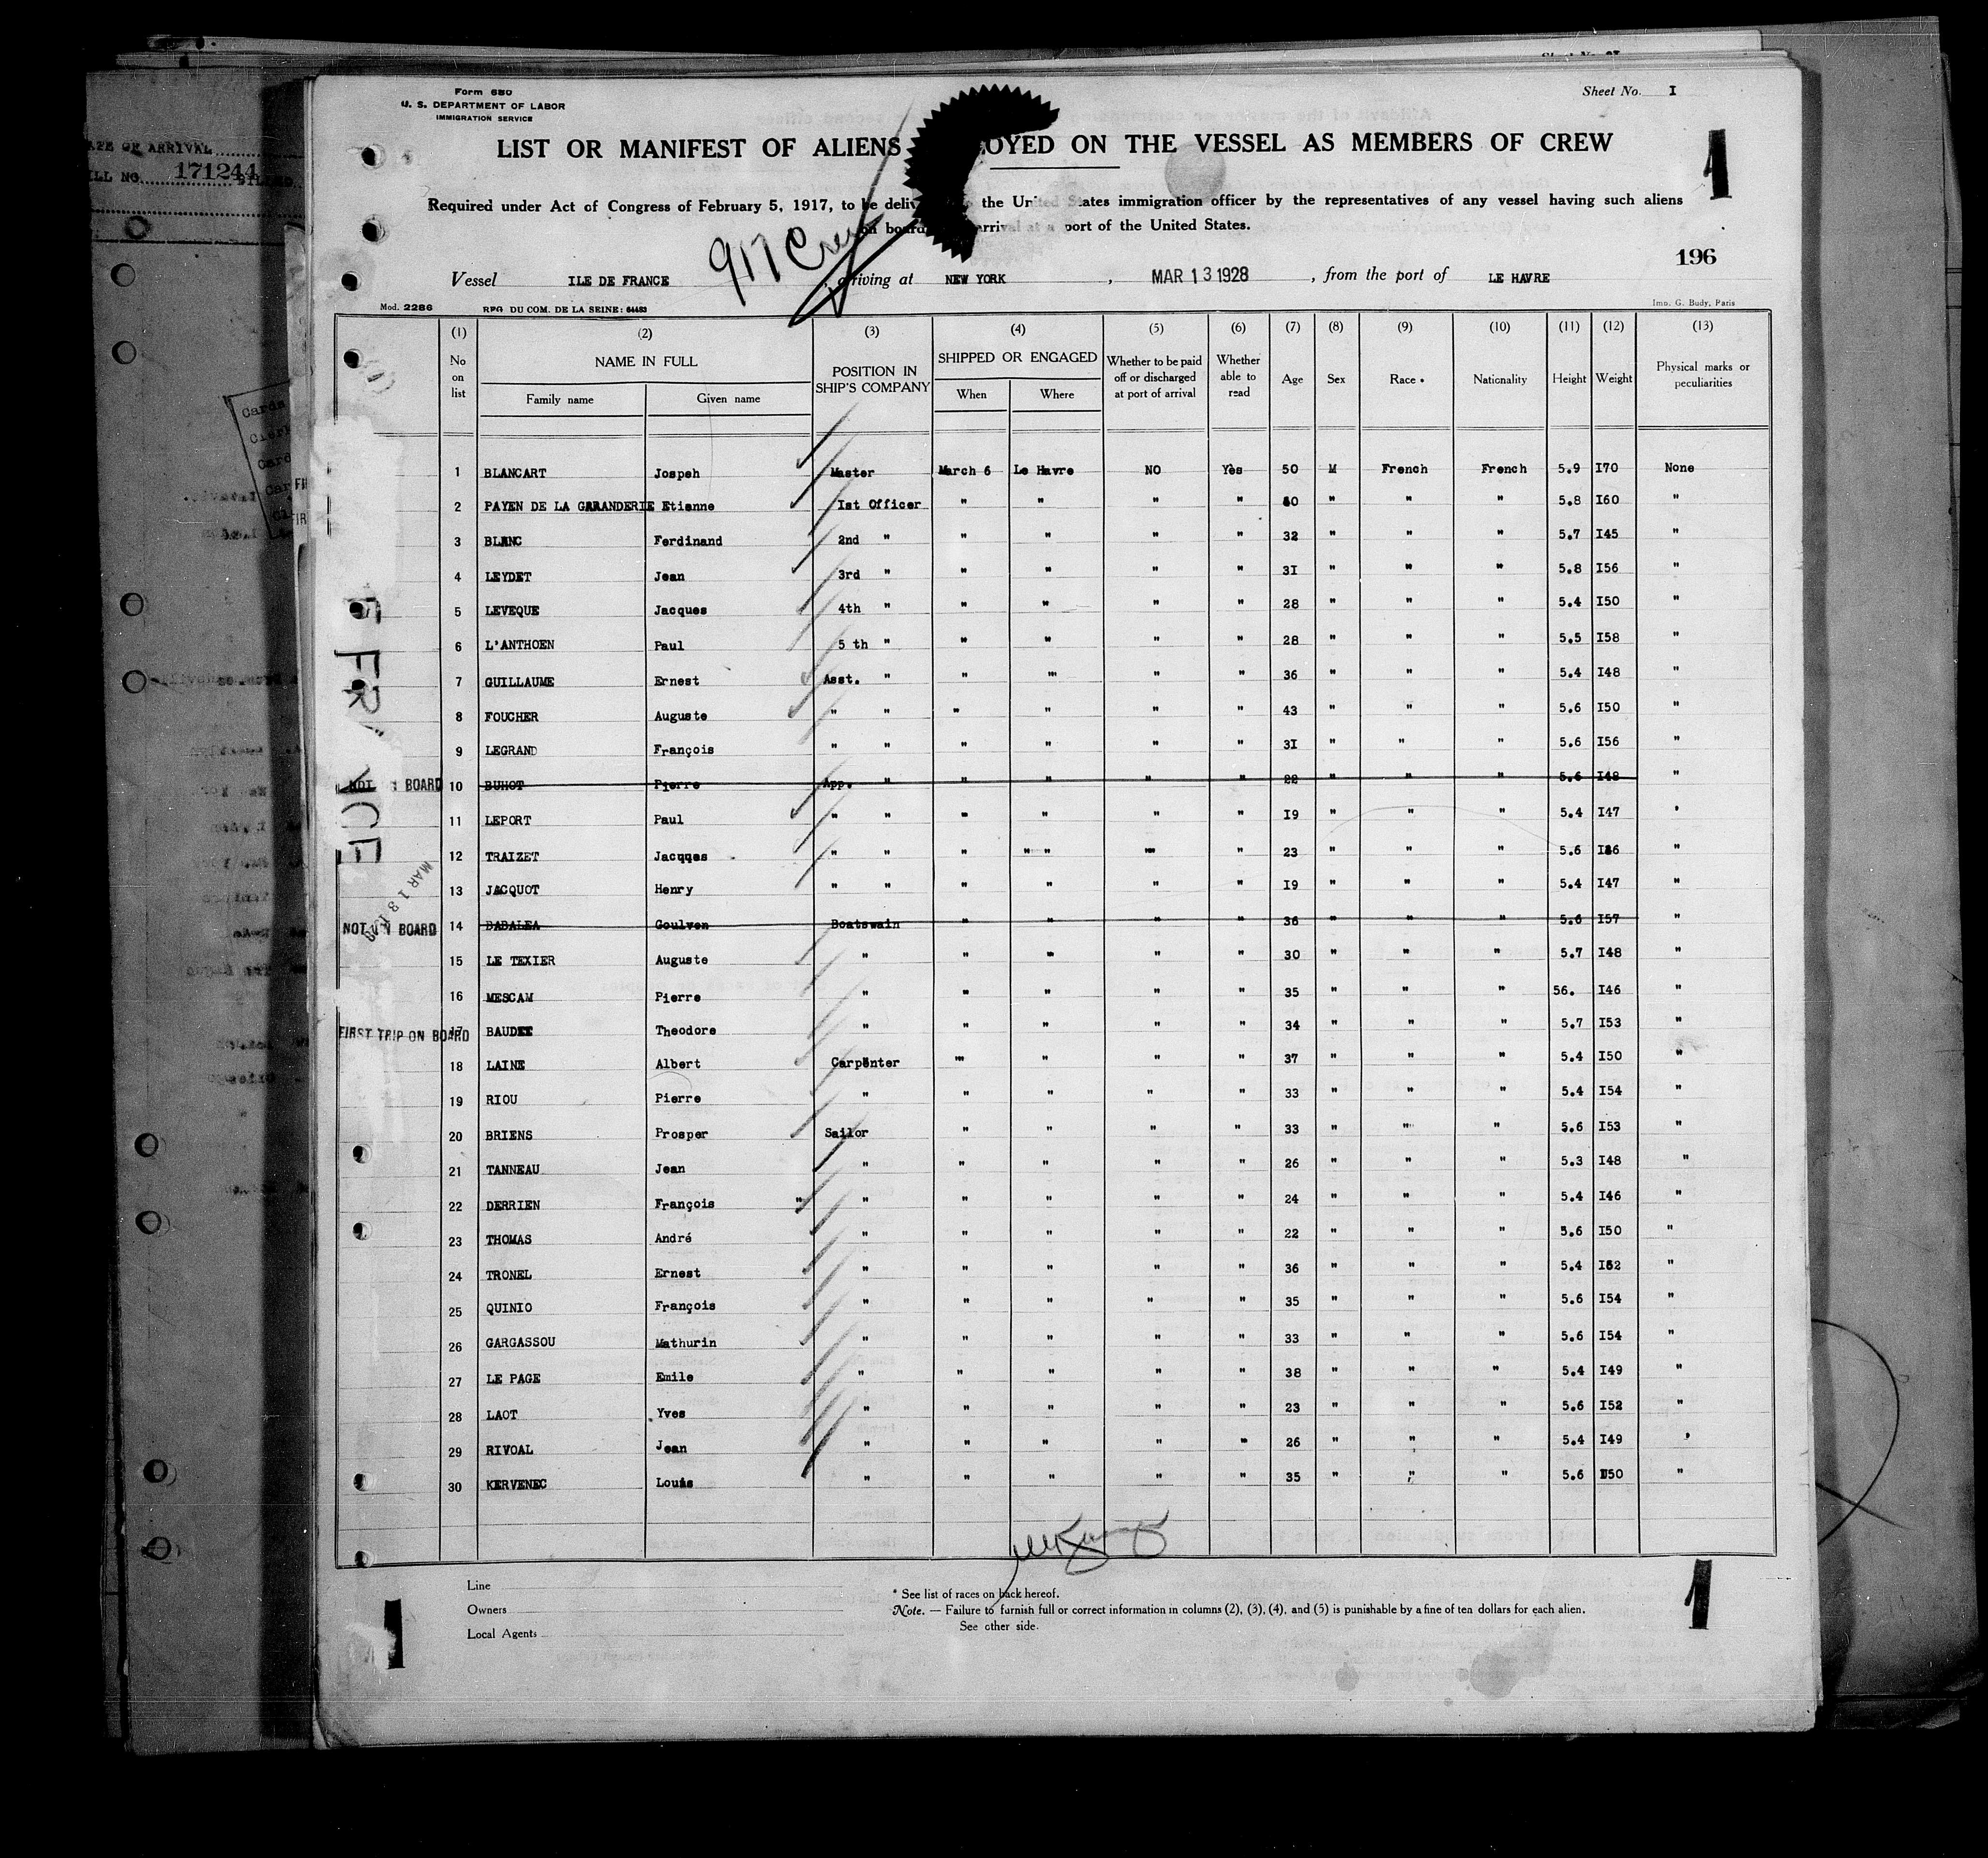 Sheet No. I
Form 680
U. S. DEPARTMENT OF LABOR
IMMIGRATION SERVICE
LIST OR MANIFEST OF ALIENS OYED ON THE VESSEL AS MEMBERS OF CREW
1
Required under Act of Congress of February 5, 1917, to be deliv the United States immigration officer by the representatives of any vessel having such aliens
on board arrival at a port of the United States.
917 Crew
196
Vessel ILE DE FRANCE , arriving at NEW YORK , MAR 13 1928 , from the port of LE HAVRE
Mod. 2286 REG DU COM. DE LA SEINE: 64483 Imp. G. Budy, Paris
(1) (2) (3) (4) (5) (6) (7) (8) (9) (10) (11) (12) (13)
No on list NAME IN FULL Family name Given name POSITION IN SHIP'S COMPANY SHIPPED OR ENGAGED When Where Whether to be paid off or discharged at port of arrival Whether able to read Age Sex Race * Nationality Height Weight Physical marks or peculiarities
1 BLANCART Jospeh Master March 6 Le Havre NO Yès 50 M French French 5.9 I70 None
2 PAYEN DE LA GARANDERIE Etienne Ist Officer " " " " " " " 5.8 I60 "
3 BLANC Ferdinand 2nd " " " " " 32 " " " 5.7 I45 "
4 LEYDET Jean 3rd " " " " " 3I " " " 5.8 I56 "
5 LEVEQUE Jacques 4th " " " " " 28 " " " 5.4 I50 "
6 L'ANTHOEN Paul 5 th " " " " " 28 " " " 5.5 I58 "
7 GUILLAUME Ernest Asst. " " " " " 36 " " " 5.4 I48 "
8 FOUCHER Auguste " " " " " " 43 " " " 5.6 I50 "
9 LEGRAND François " " " " " " 3I " " " 5.6 I56 "
NOT BOARD 10 BUHOT Pierre App. " " " " " 22 " " " 5.6 I48 "
11 LEPORT Paul " " " " " " I9 " " " 5.4 I47 "
12 TRAIZET Jacques " " " " " " " 23 " " " 5.6 "
13 JACQUOT Henry " " " " " " I9 " " " 5.4 I47 "
NOT ON BOARD 14 BABALEA Goulven Boatswain " " " " 36 " " " 5.6 I57 "
15 LE TEXIER Auguste " " " " " 30 " " " 5.7 I48 "
16 MESCAM Pierre " " " " " 35 " " " 56. I46 "
FIRST TRIP ON BOARD 17 BAUDET Theodore " " " " " 34 " " " 5.7 I53 "
18 LAINE Albert Carpenter " " " " 37 " " " 5.4 I50 "
19 RIOU Pierre " " " " " 33 " " " 5.4 I54 "
20 BRIENS Prosper Sailor " " " " 33 " " " 5.6 I53 "
21 TANNEAU Jean " " " " " 26 " " " 5.3 I48 "
22 DERRIEN François " " " " " " 24 " " " 5.4 I46 "
23 THOMAS André " " " " " 22 " " " 5.6 I50 "
24 TRONEL Ernest " " " " " 36 " " " 5.4 I52 "
25 QUINIO François " " " " " 35 " " " 5.6 I54 "
26 GARGASSOU Mathurin " " " " " 33 " " " 5.6 I54 "
27 LE PAGE Emile " " " " " 38 " " " 5.4 I49 "
28 LAOT Yves " " " " " 23 " " " 5.6 I52 "
29 RIVOAL Jean " " " " " 26 " " " 5.4 I49 "
30 KERVENEC Louis " " " " " 35 " " " 5.6 I50 "
MAR 13
Line
Owners
Local Agents
* See list of races on back hereof.
Note. — Failure to furnish full or correct information in columns (2), (3), (4), and (5) is punishable by a fine of ten dollars for each alien.
See other side.
1
1
DATE OF ARRIVAL
BILL NO. 171244